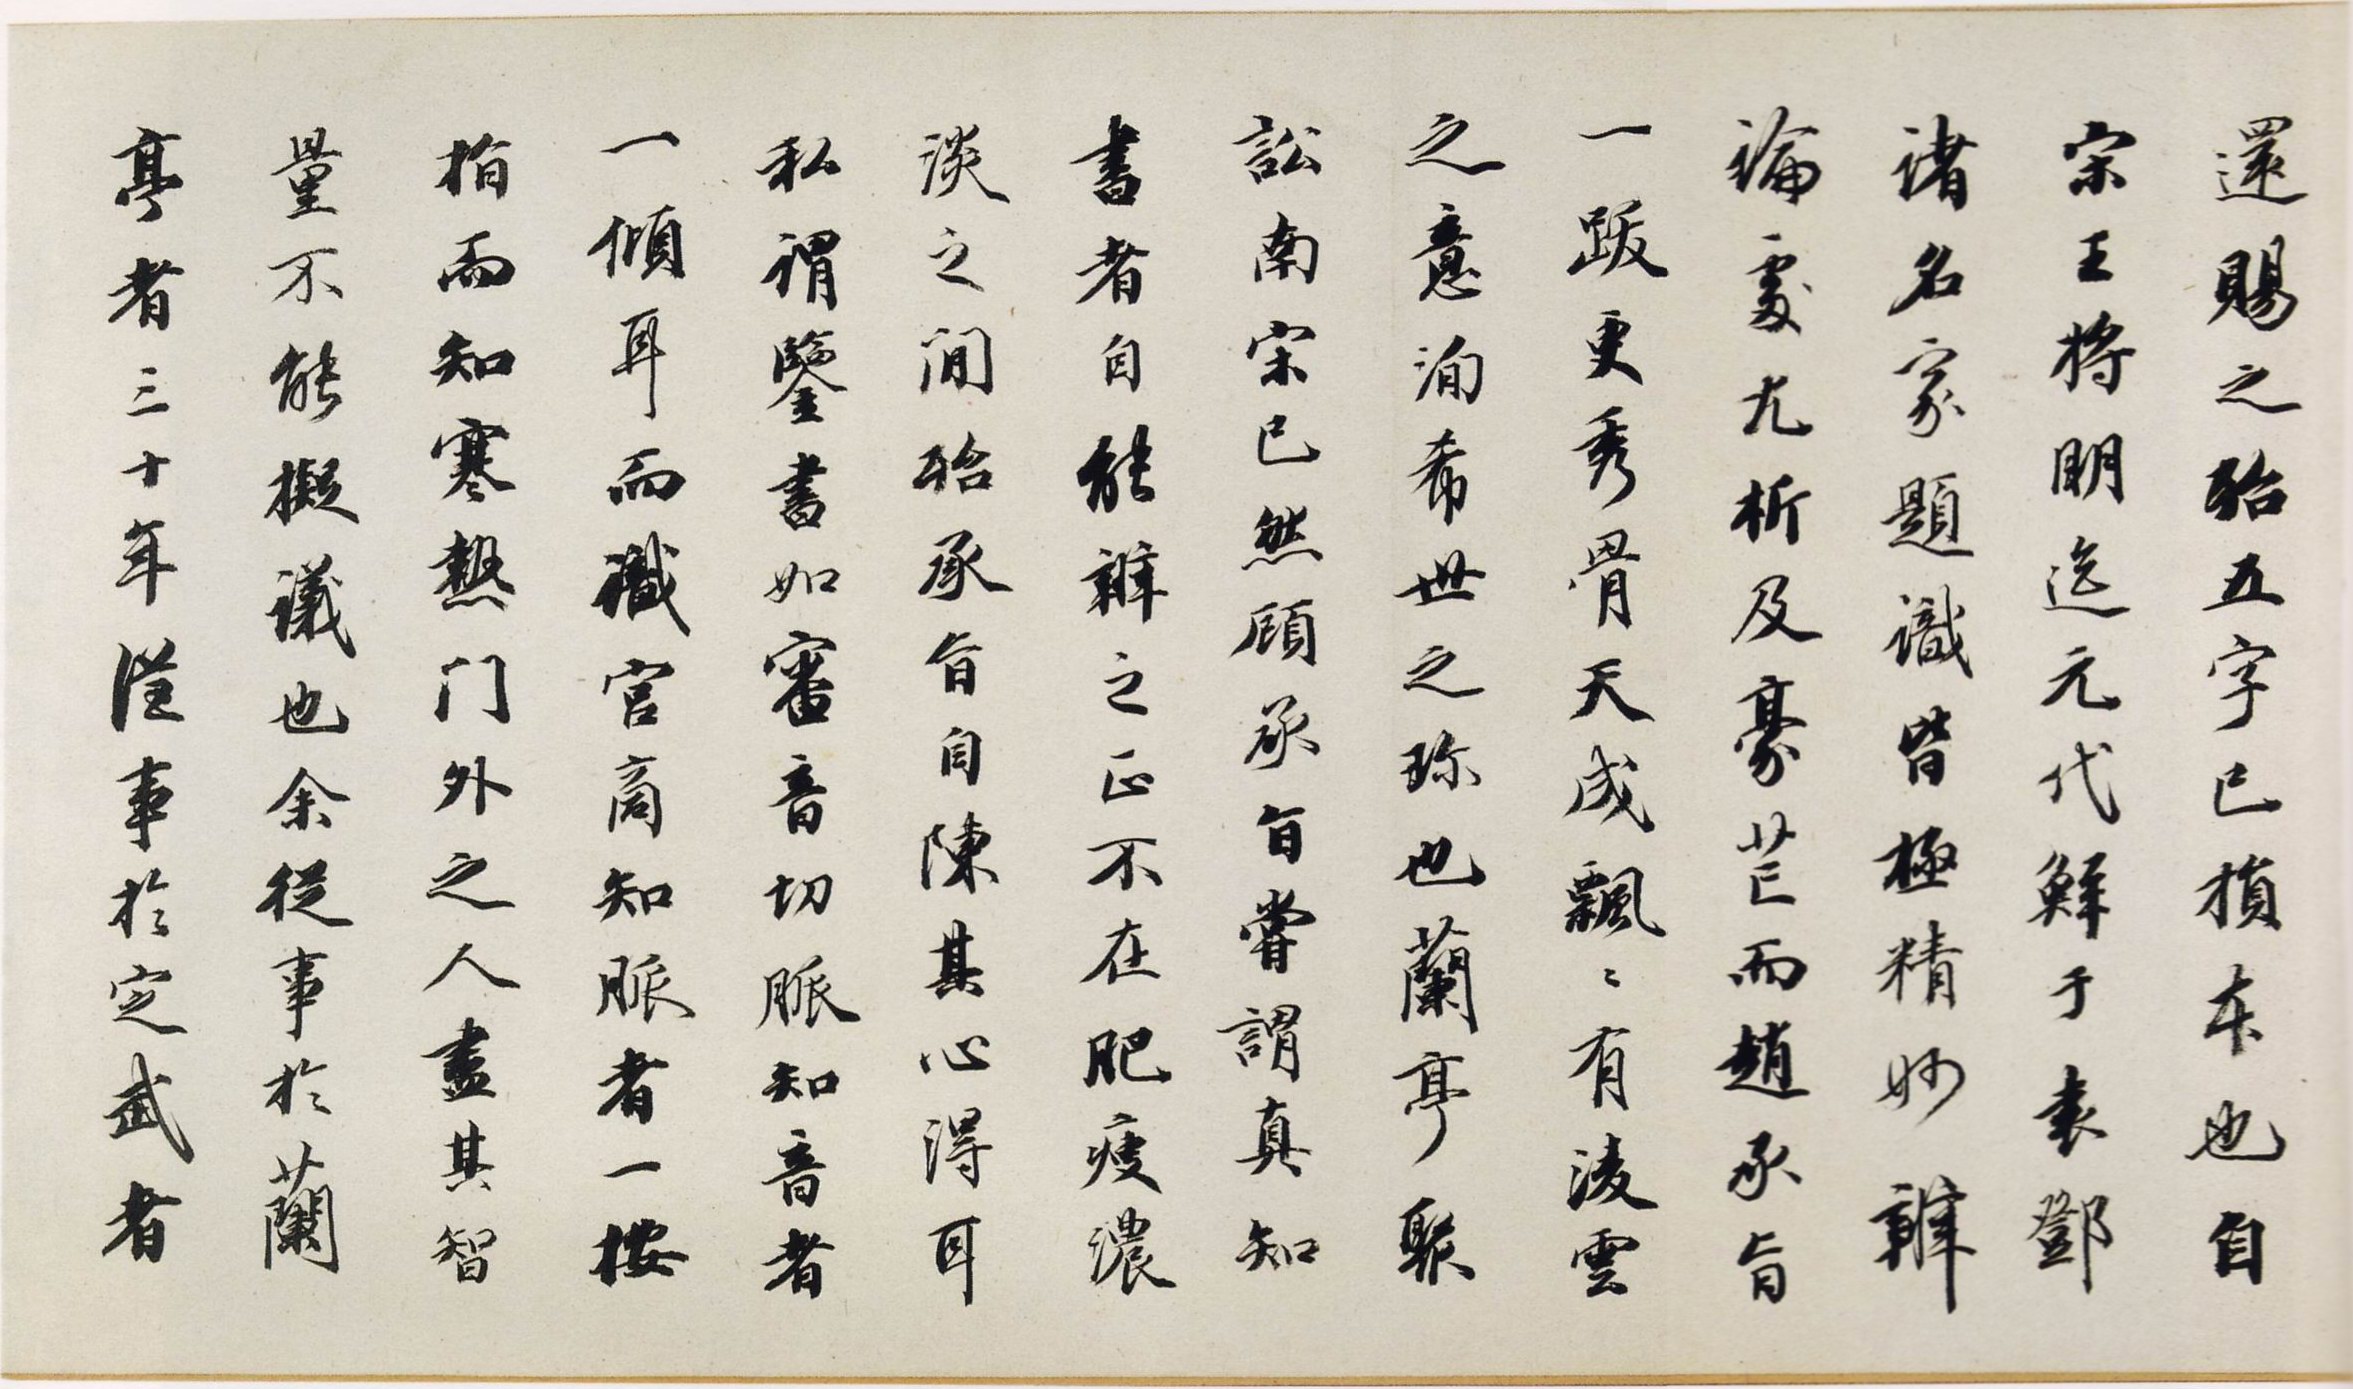 還賜之殆五字已損本也自
宋王將明迄元代鮮于袁鄧
諸名家題識皆極精妙辨
論處尤析及豪芒而趙承旨
一跋更秀骨天成飄〻有淩雲
之意洵希世之珎也蘭亭聚
訟南宋已然顧承旨嘗謂真知
書者自能辨之正不在肥瘦濃
淡之間殆承旨自陳其心得耳
私謂鑒書如審音切脈知音者
一傾耳而識宮商知脈者一按
指而知寒熱門外之人盡其智
量不能擬議也余從事於蘭
亭者三十年從事於定武者